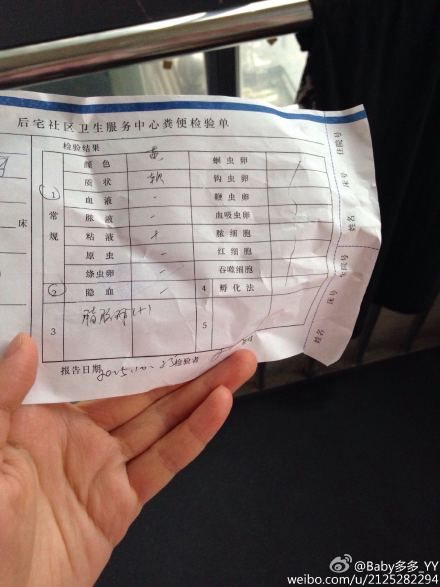 后宅社区卫生服务中心粪便检验单
检验结果
颜色 黄 蛔虫卵
1 性状 软 钩虫卵
血液 - 鞭虫卵
常 脓液 - 血吸虫卵
规 粘液 + 脓细胞
原虫 - 红细胞
绦虫卵 - 吞噬细胞
2 隐血 - 4 孵化法
3 脂肪球(+) 5
报告日期 检验者
床
住院号
床号
姓名
住院号
床号
姓名
@Baby多多_YY
weibo.com/u/2125282294